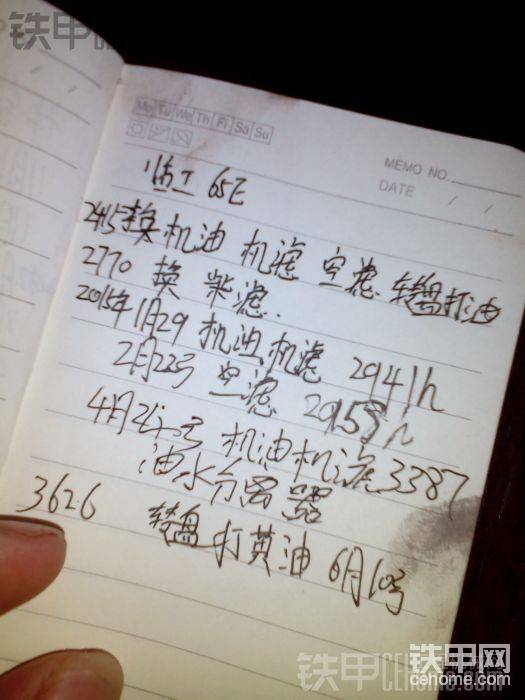 铁甲
Mo Tu We Th Fr Sa Su
MEMO NO.
DATE / /
临工 65E
2415换 机油 机滤 空滤 转盘打油
2770 换 柴滤.
2015年1月29 机油机滤 2941h
2月22号 空滤 2958h
4月2号 机油机滤3387
油水分离器
3626 转盘打黄油 6月10号
铁甲网
cehome.com